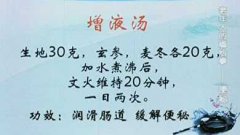 增液汤
生地30克，玄参，麦冬各20克，
加水煮沸后，
文火维持20分钟，
一日两次。
功效：润滑肠道 缓解便秘